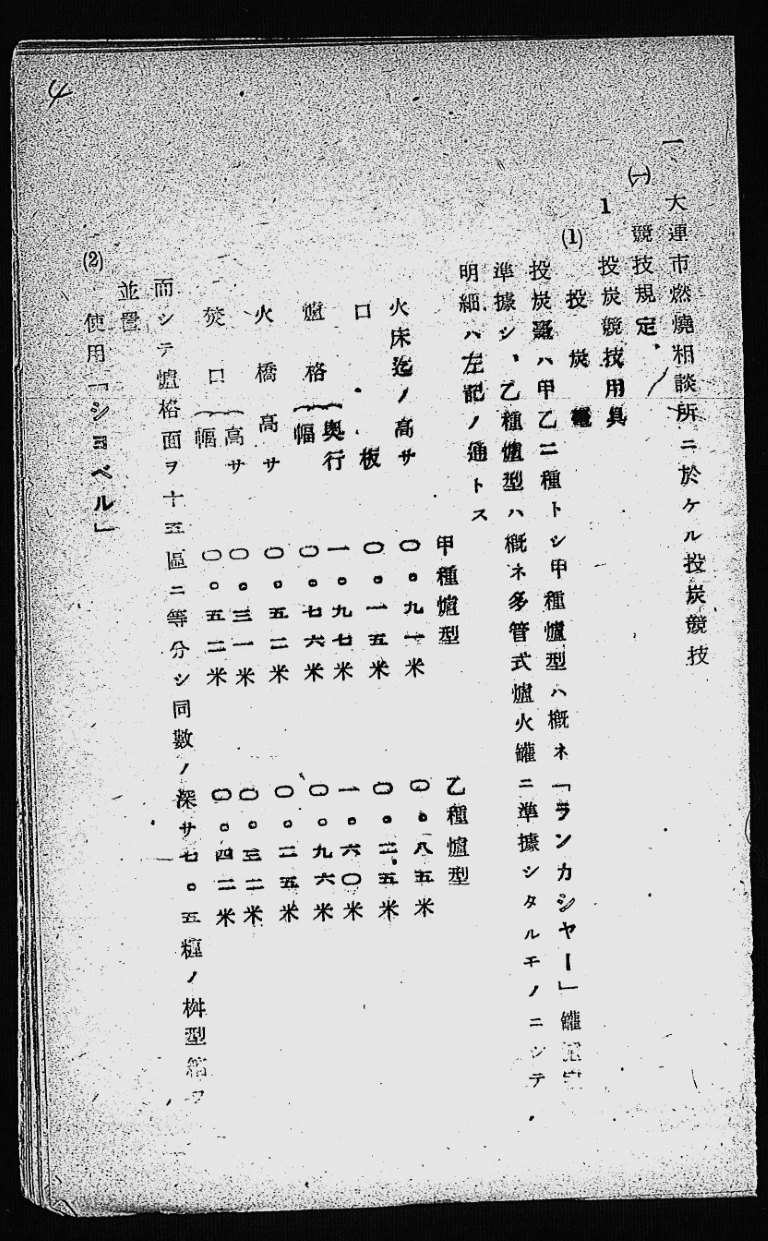 4
一、大連市燃燒相談所ニ於ケル投炭競技
(一)競技規定
1 投炭競技用具
(1) 投炭罐
投炭罐ハ甲乙二種トシ甲種爐型ハ概ネ「ランカシヤー」罐
準據シ、乙種爐型ハ概ネ多管式爐火罐ニ準據シタルモノニシテ、
明細ハ左記ノ通トス
甲種爐型 乙種爐型
火床迄ノ高サ 〇。九一米 〇。八五米
口板 〇。一五米 〇。二五米
爐格 奧行 一。九七米 一。六〇米
幅 〇。七六米 〇。九六米
火橋高サ 〇。五二米 〇。二五米
焚口 高サ 〇。三一米 〇。三二米
幅 〇。五二米 〇。四二米
而シテ爐格面ヲ十五區ニ等分シ同數ノ深サ七。五糎ノ桝型箱ヲ
並置
(2) 使用「シヨベル」